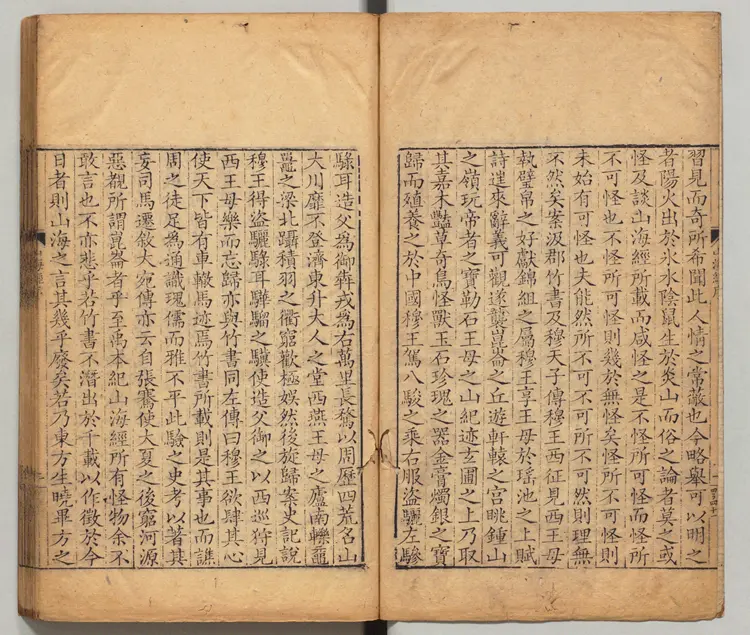 習見而奇所希聞此人情之常蔽也今略舉可以明之
者陽火出於氷水陰鼠生於炎山而俗之論者莫之或
怪及談山海經所載而咸怪之是不怪所可怪而怪所
不可怪也不怪所可怪則幾於無怪矣怪所不可怪則
未始有可怪也夫能然所不可不可所不可然則理無
不然矣案汲郡竹書及穆天子傳穆王西征見西王母
執璧帛之好獻錦組之屬穆王享王母於瑤池之上賦
詩徃來辭義可觀遂襲崑崙之丘遊軒轅之宮眺鍾山
之嶺玩帝者之寶勒石王母之山紀迹玄圃之上乃取
其嘉木豔草奇鳥怪獸玉石珍瑰之器金膏燭銀之寶
歸而殖養之於中國穆王駕八駿之乘右服盜驪左驂
騄耳造父為御犇戎為右萬里長騖以周歷四荒名山
大川靡不登濟東升大人之堂西燕王母之廬南轢黿
鼉之梁北躡積羽之衢窮歡極娛然後旋歸案史記說
穆王得盜驪騄耳驊騮之驥使造父御之以西巡狩見
西王母樂而忘歸亦與竹書同左傳曰穆王欲肆其心
使天下皆有車轍馬迹焉竹書所載則是其事也而譙
周之徒足為通識瑰儒而雅不平此驗之史考以著其
妄司馬遷敘大宛傳亦云自張騫使大夏之後窮河源
惡覩所謂崑崙者乎至禹本紀山海經所有怪物余不
敢言也不亦悲乎若竹書不潛出於千載以作徵於今
日者則山海之言其幾乎廢矣若乃東方生曉畢方之